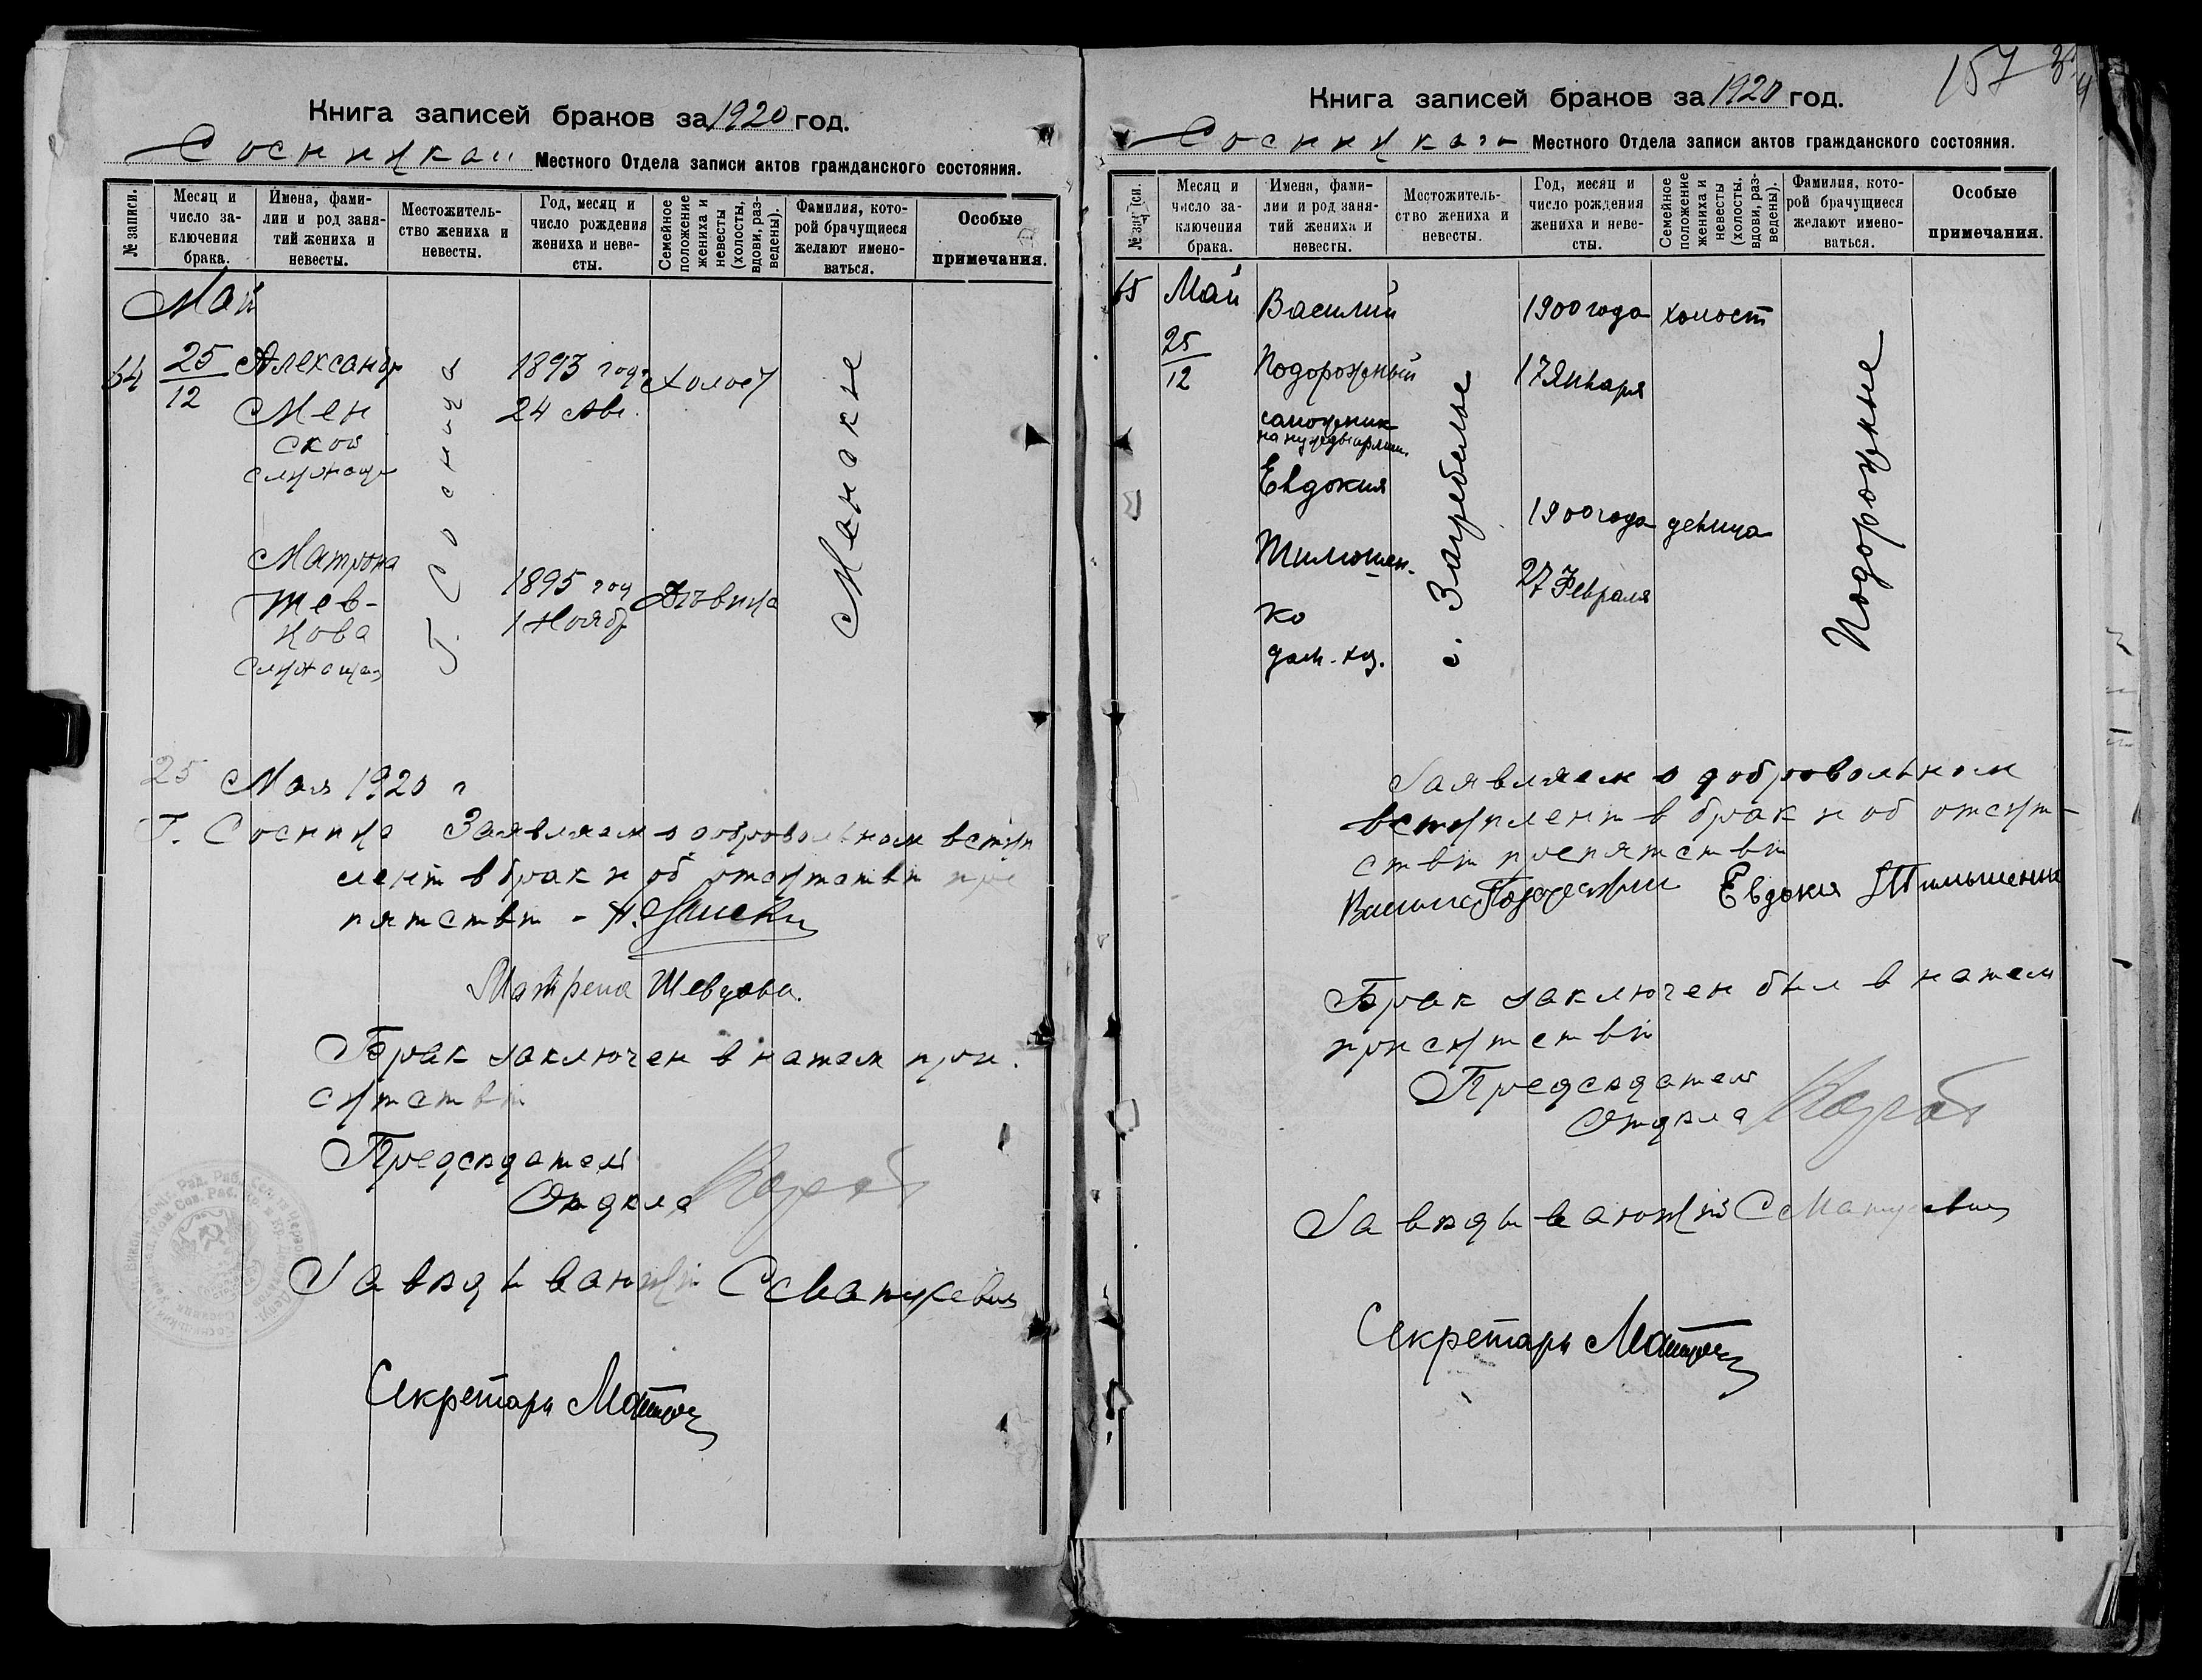 Книга записей браков за 1920 год.
Сосницкаго Местного Отдела записи актов гражданского состояния.
№ записи.
Месяц и число заключения брака.
Имена, фамилии и род занятий жениха и невесты.
Местожительство жениха и невесты.
Год, месяц и число рождения жениха и невесты.
Семейное положение жениха и невесты (холосты, вдовы, разведены).
Фамилия, которой брачущиеся желают именоваться.
Особые примечания.
Май
64
25
12
Александр
Мен
ской
служащи
Г. Сосница
1893 год
24 Авг.
Холост
Менские
Матрона
Шев-
цова
служащая
1895 год
1 Ноябр
Дѣвица
25 Мая 1920 г
Г. Сосница Заявляем о добровольном вступ
лении в брак и об отсутствии пре
пятствий -
Матрена Шевцова.
Брак заключен в нашем при.
сутствии
Председатель
Отдела
Заведывающий С Матусевич
Секретарь
157
Книга записей браков за 1920 год.
Сосницкаго Местного Отдела записи актов гражданского состояния.
№ записи.
Месяц и число заключения брака.
Имена, фамилии и род занятий жениха и невесты.
Местожительство жениха и невесты.
Год, месяц и число рождения жениха и невесты.
Семейное положение жениха и невесты (холосты, вдовы, разведены).
Фамилия, которой брачущиеся желают именоваться.
Особые примечания.
65
Май
25
12
Василий
Подорожный
сапожник
Евдокия
Тимошен-
ко
дом. хоз.
с. Загребелье
1900 года
17 Января
холост
1900 года
27 Февраля
девица
Подорожные
Заявляем о добровольном
вступлении в брак и об отсут-
ствии препятствий
Евдокия
Брак заключен был в нашем
присутствии
Председатель
Отдела
Заведывающий С Матусевич
Секретарь